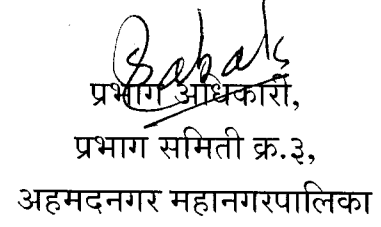 प्रभाग अधिकारी,
प्रभाग समिती क्र.३,
अहमदनगर महानगरपालिका